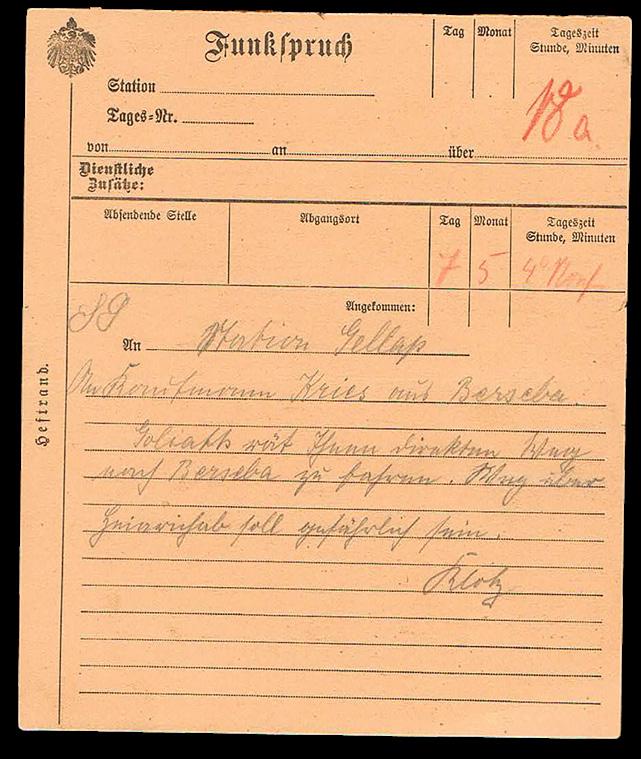 Funkspruch
Tag Monat Tageszeit
Stunde, Minuten
Station
Tages-Nr.
18 a.
von an über
Dienstliche
Zusätze:
Absendende Stelle Abgangsort Tag Monat Tageszeit
Stunde, Minuten
7 5 4⁰
Angekommen:
An Station Gellap
An Kaufmann Kries aus Berseba.
Goliath rät Ihnen direkten Weg
nach Berseba zu fahren. Weg über
Heinrichab soll gefährlich sein.
Klotz
Heftrand.